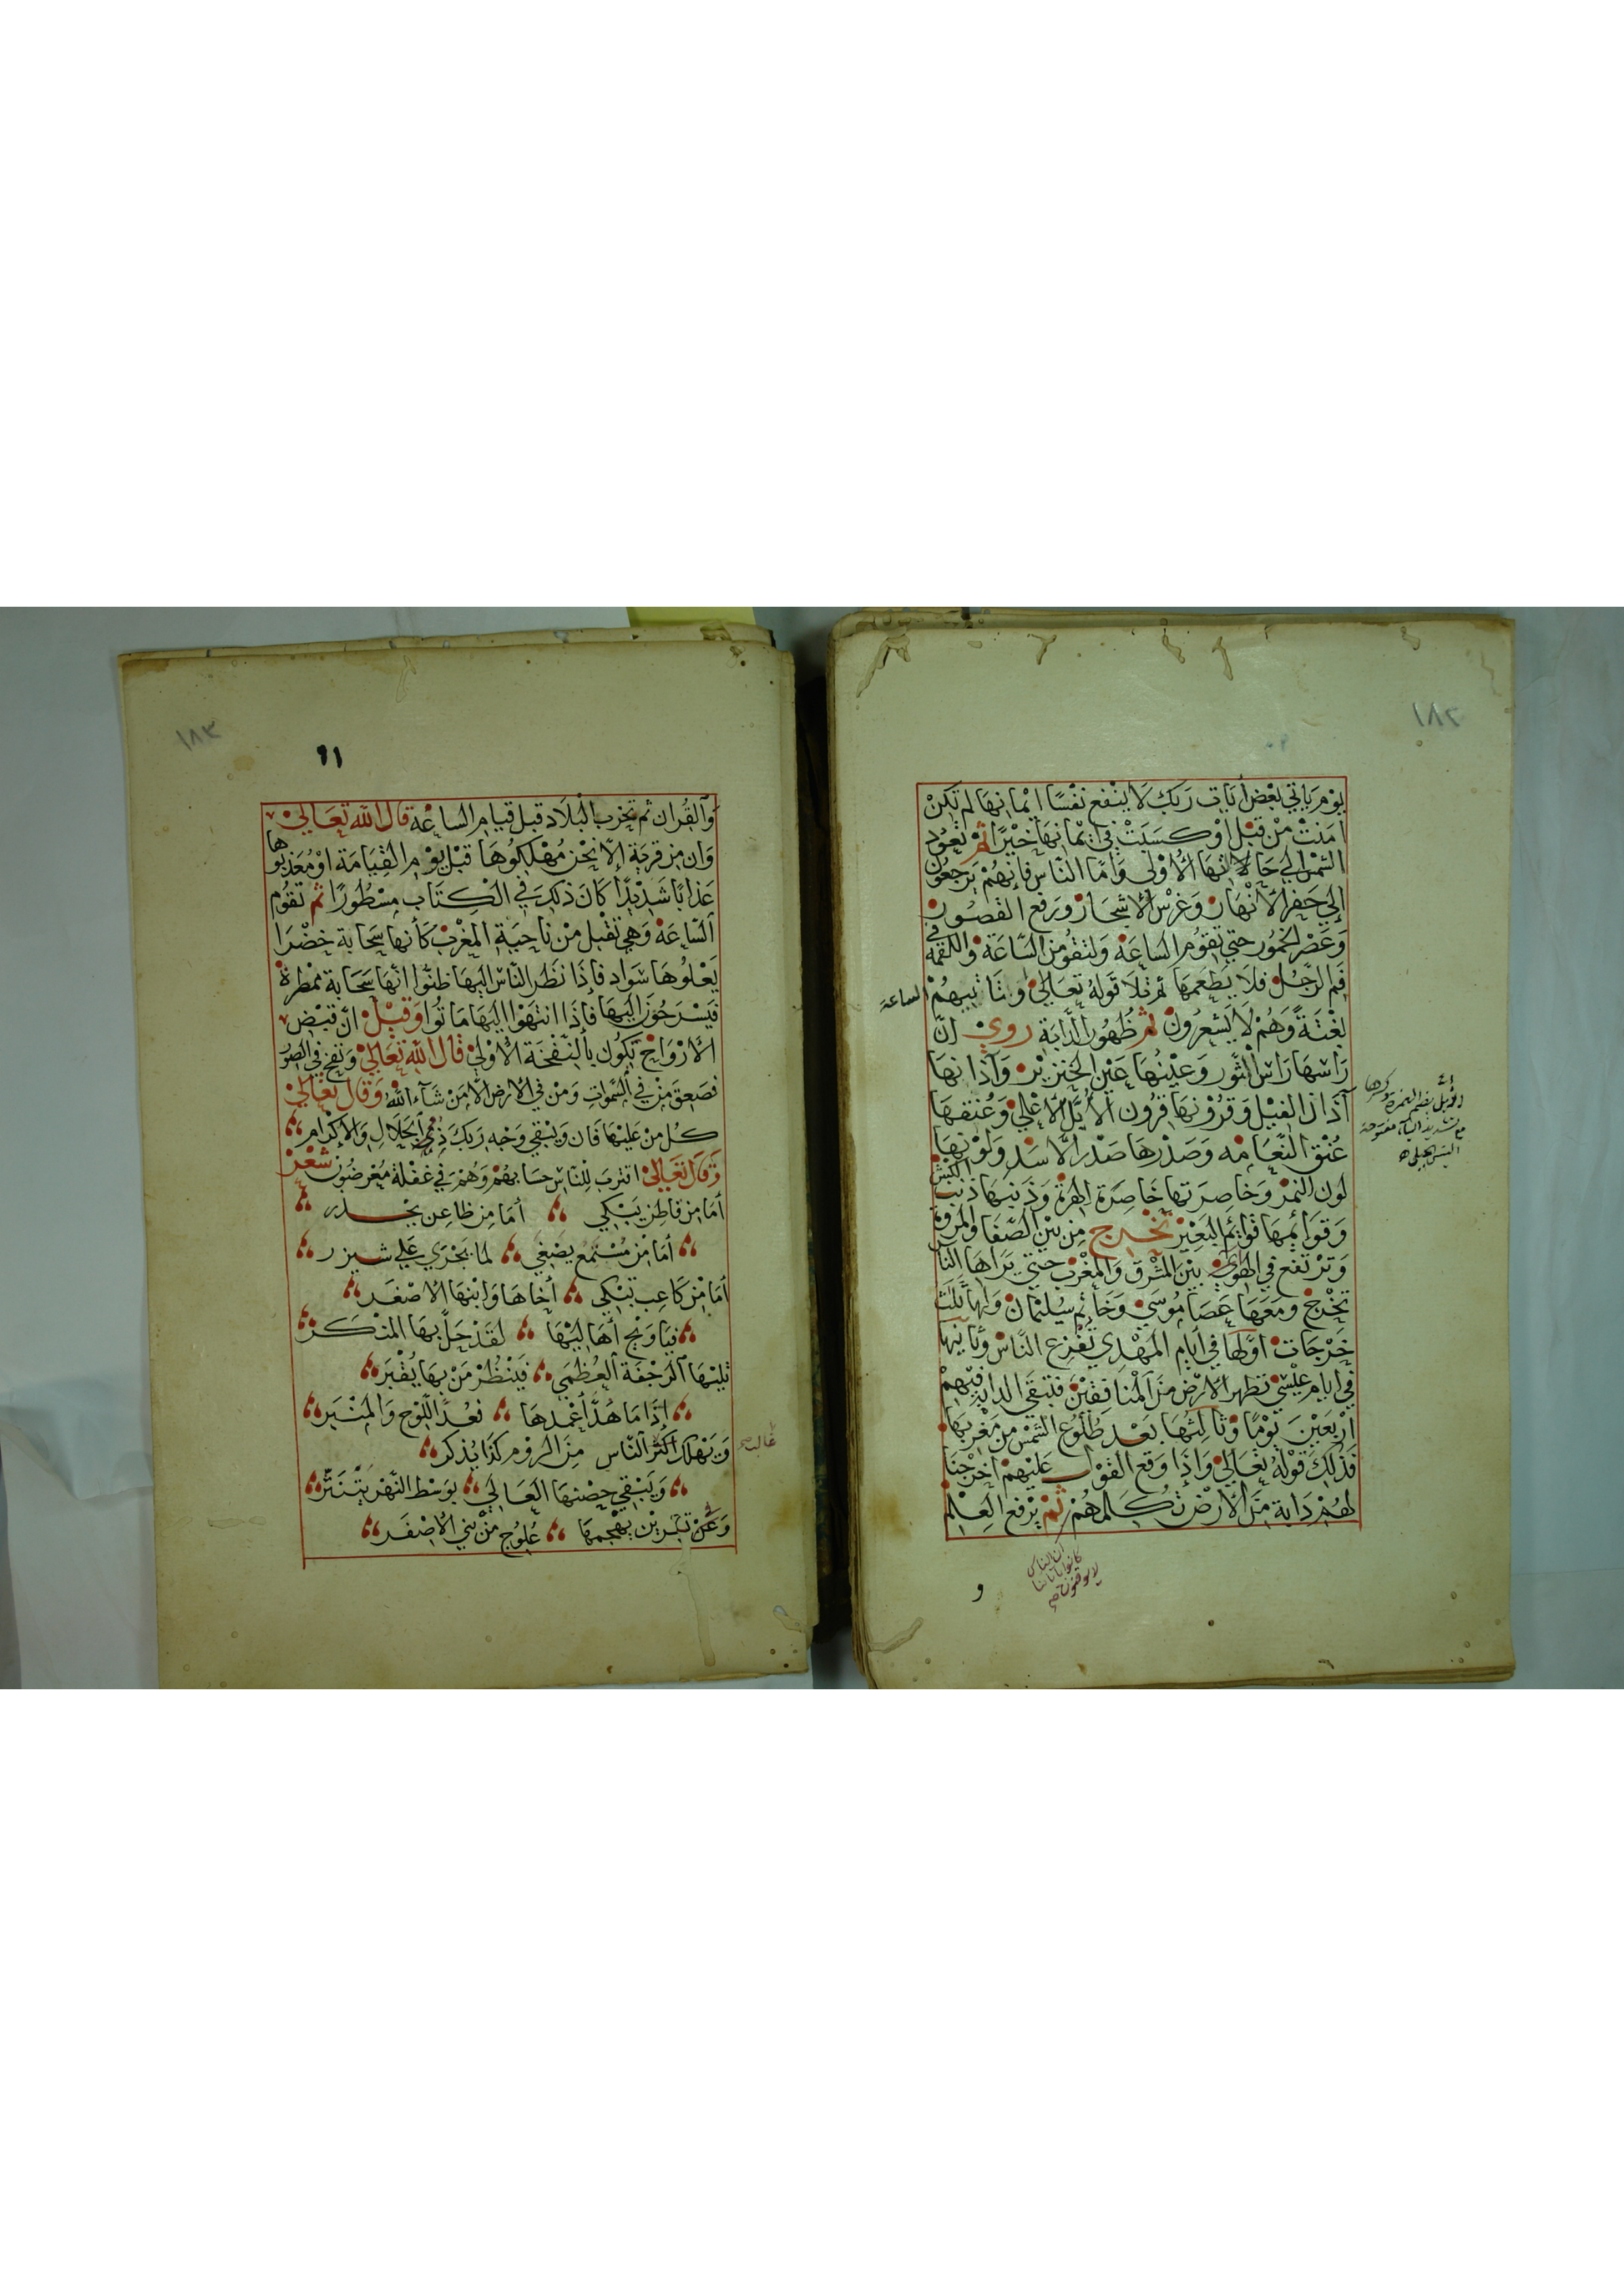 ١٨٢
يوم ياتي بعض ايات ربك لا ينفع نفسا ايمانها لم تكن
امنت من قبل او كسبت في ايمانها خيرا ثم تعود
الشمس الي حالاتها الاولي واما الناس فانهم يرجعون
الي حفر الانهار وغرس الاشجار ورفع القصور
وعصر الخمور حتي تقوم الساعة ولتقومن الساعة واللقمة في
فم الرجل فلا يطعمها ثم تلا قوله تعالي وتاتيهم الساعة
بغتة وهم لا يشعرون ثم ظهور الدابة روي ان
راسها راس الثور وعينها عين الخنزير واذانها
آذان الفيل وقرونها قرون الايل الاعلي وعنقها
عنق النعامه وصدرها صدر الاسد ولونها
لون النمر وخاصرتها خاصرة الهرة وذنبها ذنب الكبش
وقوائمها قوائم البعير تخرج من بين الصفا والمروة
وترتفع في الهوي بين المشرق والمغرب حتي يراها الناس
تخرج ومعها عصا موسي وخاتم سليمان ولها ثلث
خرجات اولها في ايام المهدي تفزع الناس وثانيها
في ايام عيسي تطهر الارض من المنافقين فتبقي الدابة فيهم
اربعين يوما وثالثها بعد طلوع الشمس من مغربها
فذلك قوله تعالي واذا وقع القول عليهم اخرجنا
لهم دابة من الارض تكلمهم ثم يرفع العلم
ان الناس
كانوا باياتنا
لا يوقنون صح
و
الايل بضم الهمزة وكسرها
مع تشديد الياء مفتوحة
التيس الجبلي
١٨٣
٩١
والقران ثم تخرب البلاد قبل قيام الساعة قال الله تعالي
وان من قرية الا نحن مهلكوها قبل يوم القيامة او معذبوها
عذابا شديدا كان ذلك في الكتاب مسطورا ثم تقوم
الساعة وهي تقبل من ناحية المغرب كأنها سحابة خضرا
يعلوها سواد فاذا نظر الناس اليها ظنوا انها سحابة ممطرة
فيسرحون اليها فاذا انتهوا اليها ماتوا وقيل ان قبض
الارواح يكون بالنفخة الاولي قال الله تعالي ونفخ في الصور
فصعق من في السموات ومن في الارض الا من شاء الله وقال تعالي
كل من عليها فان ويبقي وجه ربك ذي الجلال والاكرام
وقال تعالي اقترب للناس حسابهم وهم في غفلة معرضون شعر
أما من قاطن يبكي أما من ظاعن يحذر
أما من مستمع يصغي لما يجري علي شيزر
أما من كاعب تبكي أخاها وابنها الاصفر
فيا ويح أهاليها لقد حل بها المنكر
تليها الرجفة العظمي فينظر من بها يقبر
اذا ما هد أعمدها فعد اللوح والمنبر
ويهلك اكثر الناس من الروم كذا يذكر
ويبقي حصنها العالي بوسط النهر يتنثر
وعن تبريز يهجمها علوج من بني الاصفر